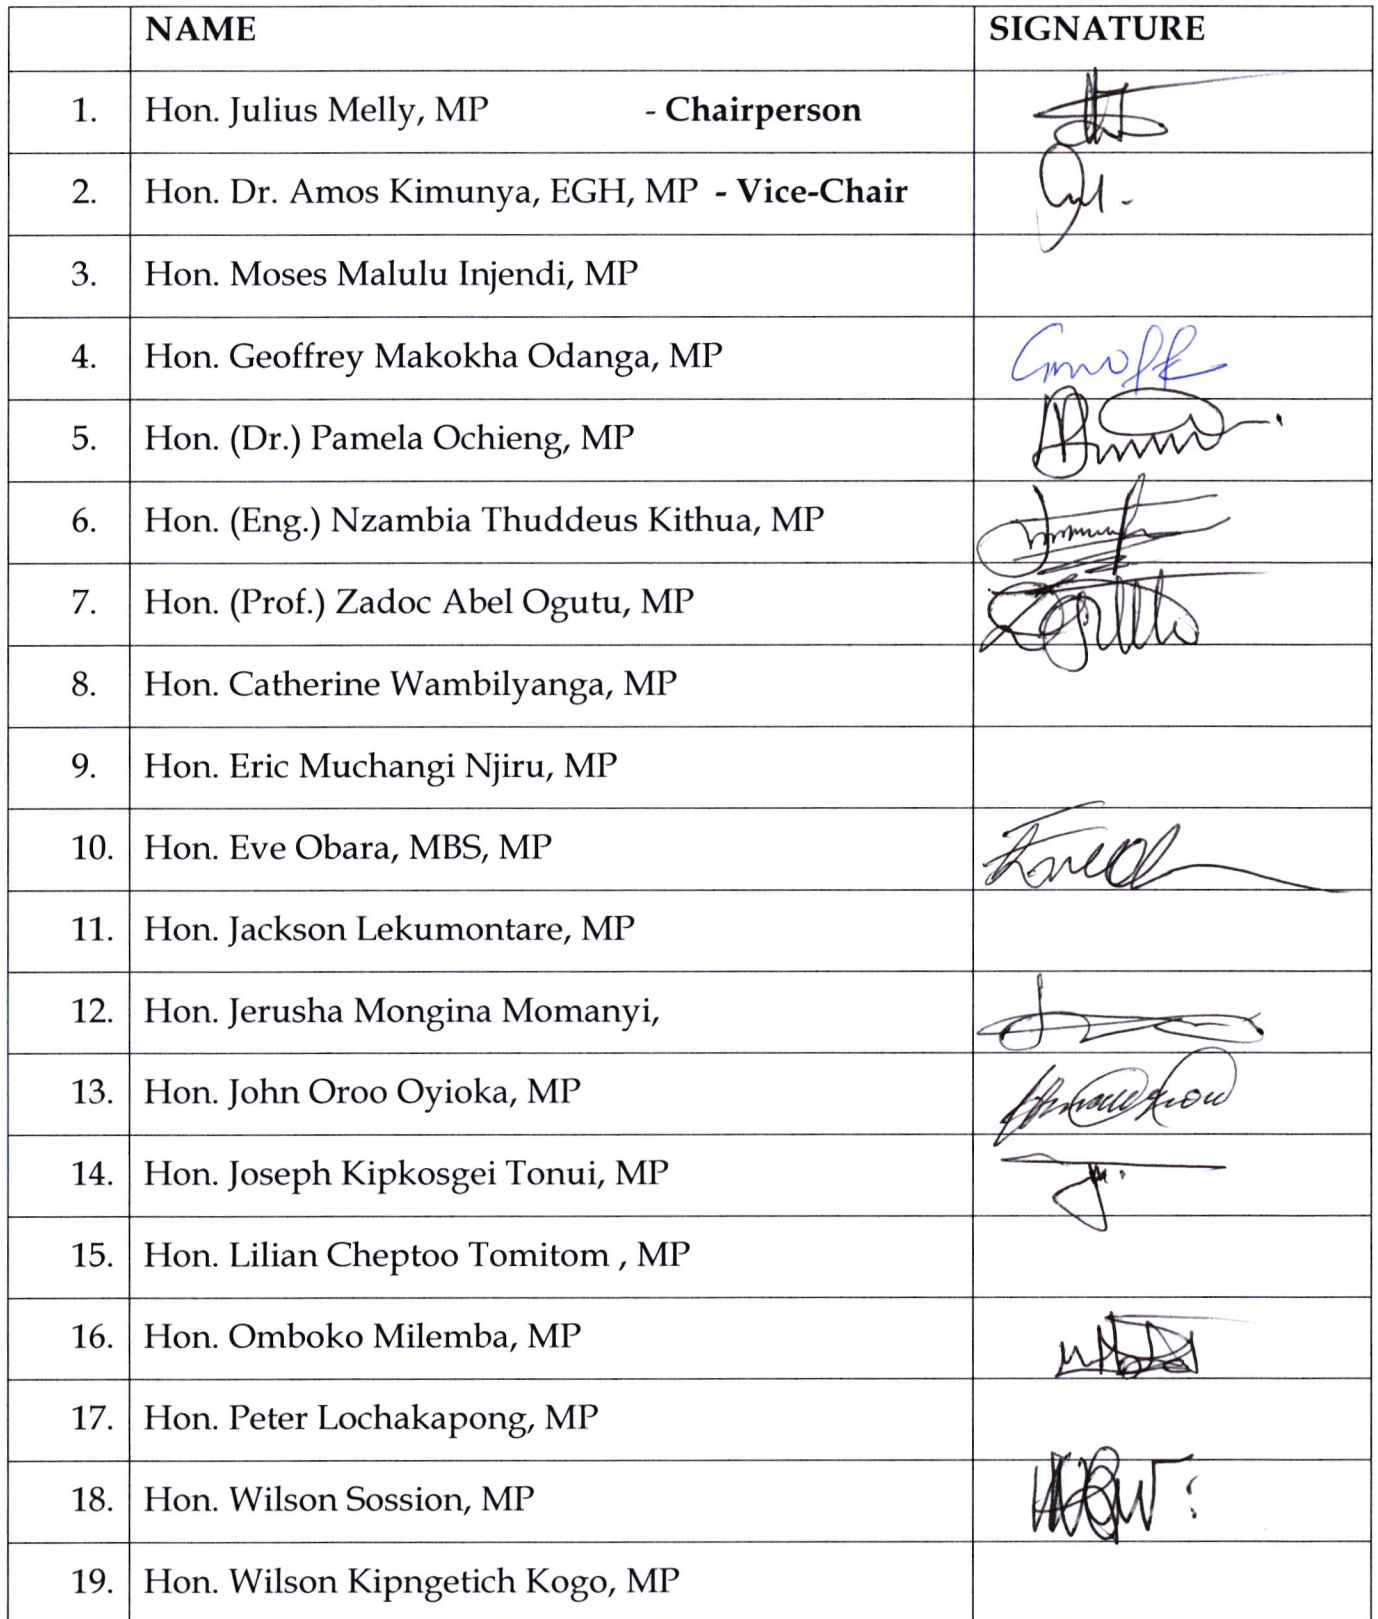 NAME SIGNATURE
1. Hon. Julius Melly, MP - Chairperson
2. Hon. Dr. Amos Kimunya, EGH, MP - Vice-Chair
3. Hon. Moses Malulu Injendi, MP
4. Hon. Geoffrey Makokha Odanga, MP
5. Hon. (Dr.) Pamela Ochieng, MP
6. Hon. (Eng.) Nzambia Thuddeus Kithua, MP
7. Hon. (Prof.) Zadoc Abel Ogutu, MP
8. Hon. Catherine Wambilyanga, MP
9. Hon. Eric Muchangi Njiru, MP
10. Hon. Eve Obara, MBS, MP
11. Hon. Jackson Lekumontare, MP
12. Hon. Jerusha Mongina Momanyi,
13. Hon. John Oroo Oyioka, MP
14. Hon. Joseph Kipkosgei Tonui, MP
15. Hon. Lilian Cheptoo Tomitom , MP
16. Hon. Omboko Milemba, MP
17. Hon. Peter Lochakapong, MP
18. Hon. Wilson Sossion, MP
19. Hon. Wilson Kipngetich Kogo, MP